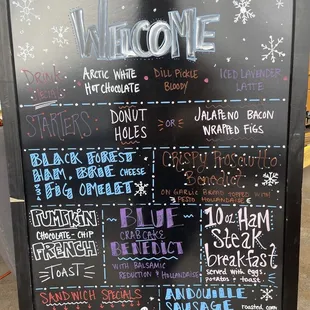 WELCOME
DRINK SPECIALS
ARCTIC WHITE
HOT CHOCOLATE
DILL PICKLE
BLOODY
ICED LAVENDER
LATTE
STARTERS:
DONUT
HOLES
OR
JALAPEÑO BACON
WRAPPED FIGS
BLACK FOREST
HAM, BRIE CHEESE
& FIG OMELET
CRISPY PROSCIUTTO
BENEDICT
ON GARLIC BREAD TOPPED WITH
PESTO HOLLANDAISE
PUMPKIN
CHOCOLATE-CHIP
FRENCH
TOAST
BLUE
CRABCAKE
BENEDICT
WITH BALSAMIC
REDUCTION & HOLLANDAISE
10oz HAM
Steak
breakfast
served with eggs,
potatoes & toast
SANDWICH SPECIALS
ANDOUILLE
SAUSAGE
roasted corn